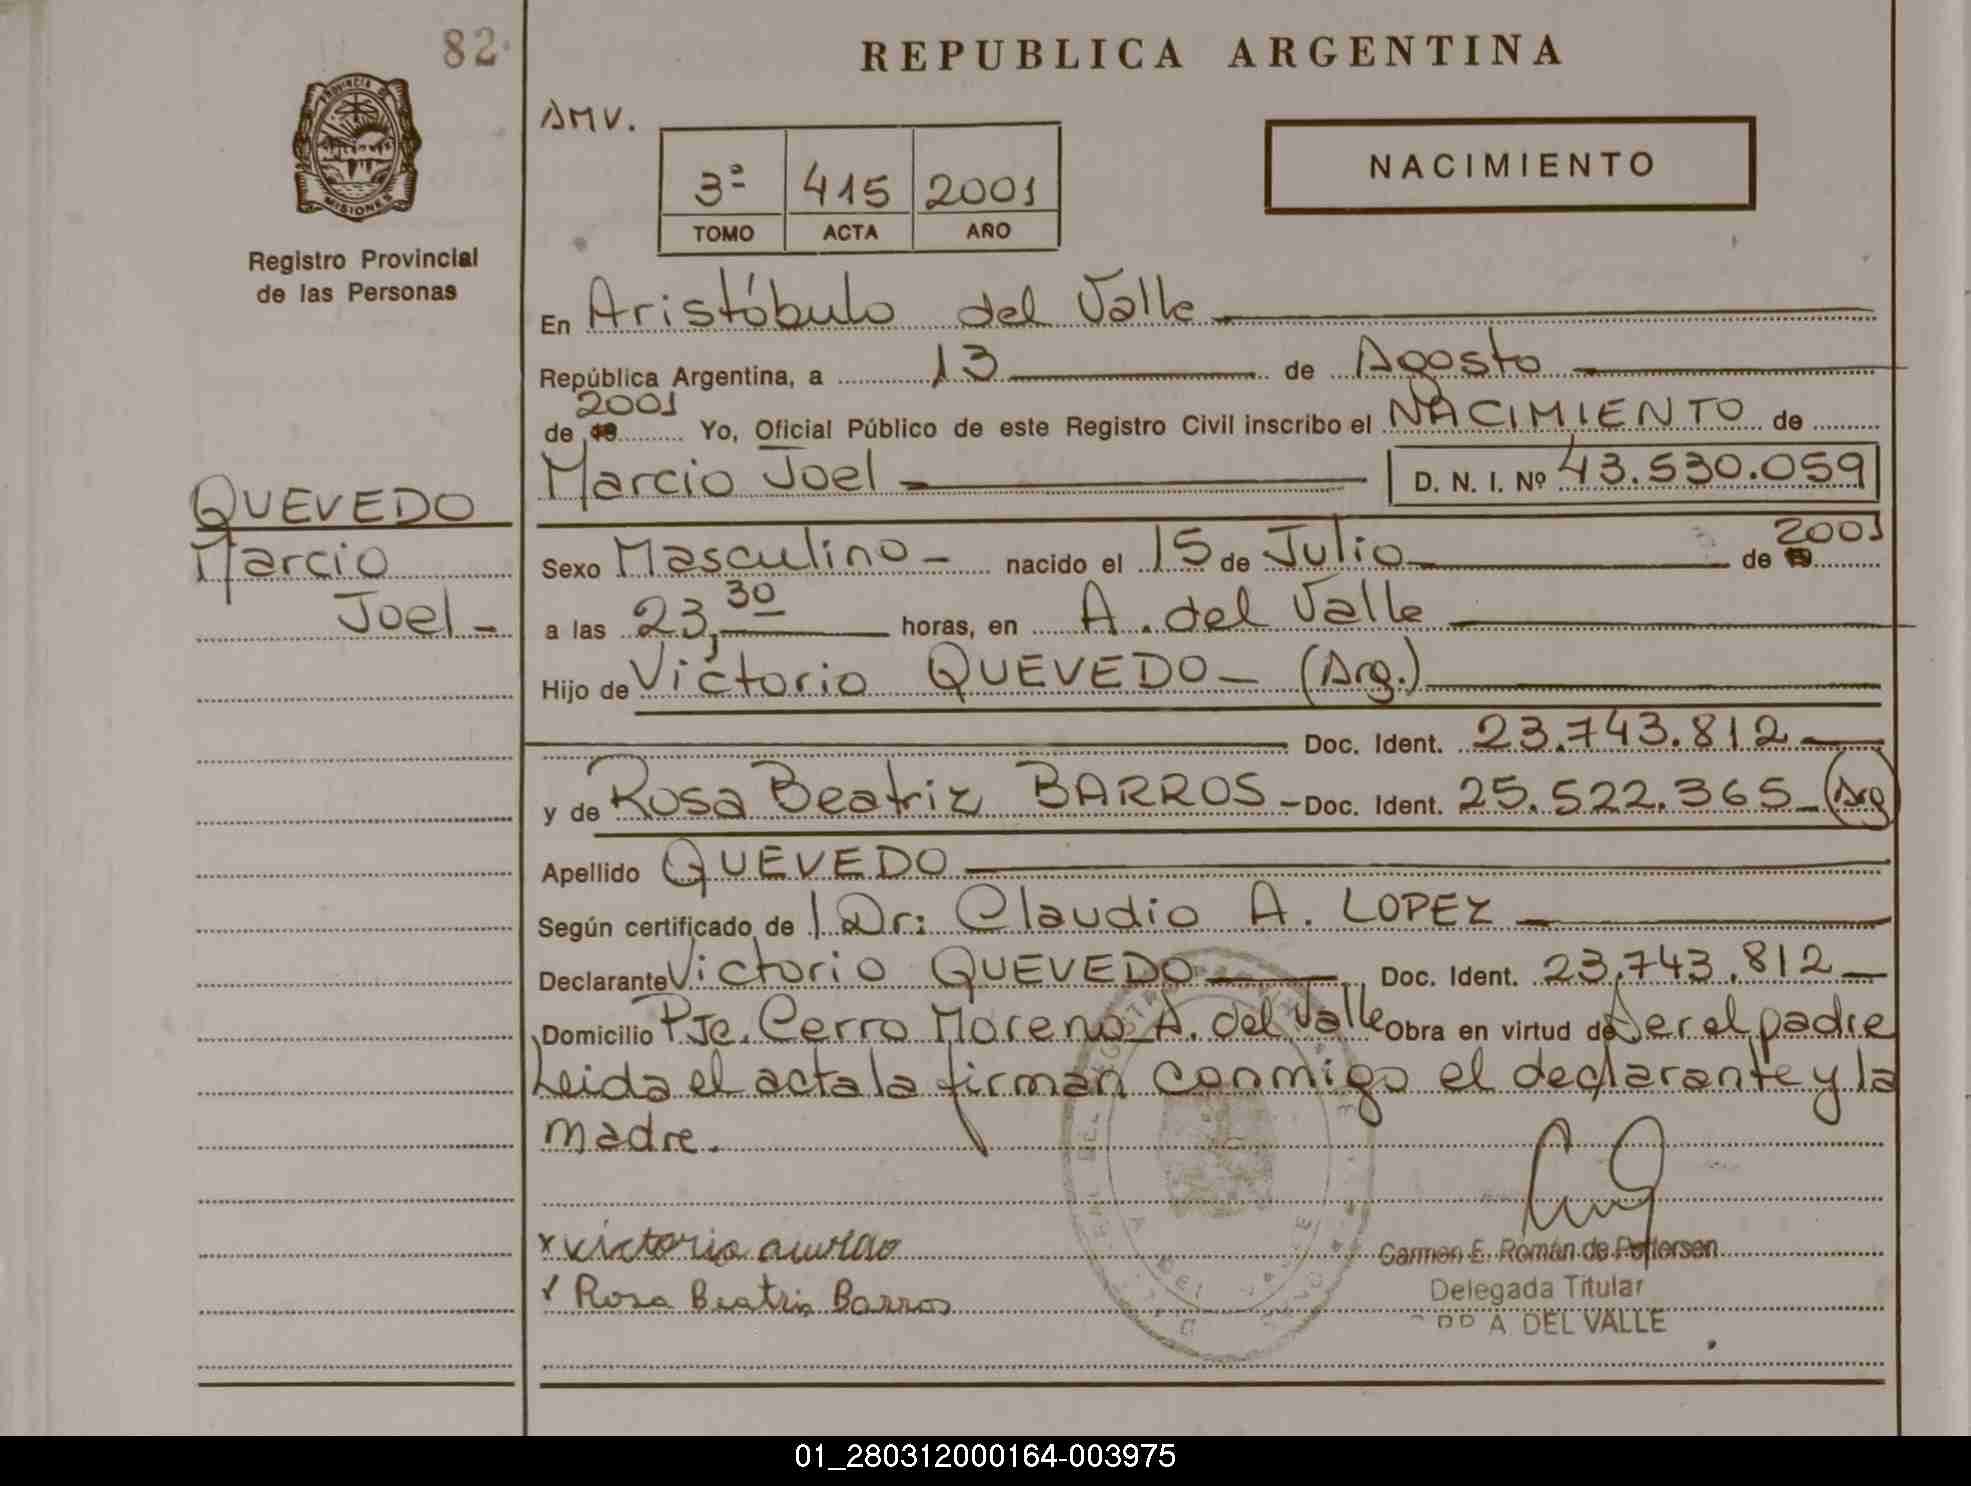 82.
REPUBLICA ARGENTINA
PROVINCIA DE
MISIONES
Registro Provincial
de las Personas
AMV.
3ª 415 2001
TOMO ACTA AÑO
NACIMIENTO
En Aristóbulo del Valle
República Argentina, a 13 de Agosto
2001
de 19 Yo, Oficial Público de este Registro Civil inscribo el NACIMIENTO de
Marcio Joel D. N. I. Nº 43.530.059
QUEVEDO
Marcio
Joel-
Sexo Masculino- nacido el 15 de Julio de 2001
a las 23,30 horas, en A. del Valle
Hijo de Victorio QUEVEDO- (Arg.)
Doc. Ident. 23.743.812
y de Rosa Beatriz BARROS- Doc. Ident. 25.522.365- (Arg
Apellido QUEVEDO
Según certificado de Dr: Claudio A. LOPEZ
Declarante Victorio QUEVEDO Doc. Ident. 23.743.812
Domicilio Pje. Cerro Moreno A. del Valle Obra en virtud de ser el padre
Leida el acta la firman conmigo el declarante y la
madre.
x victorio
Rosa Beatriz Barros
Carmen E. Román de Pettersen
Delegada Titular
A. DEL VALLE
01_280312000164-003975